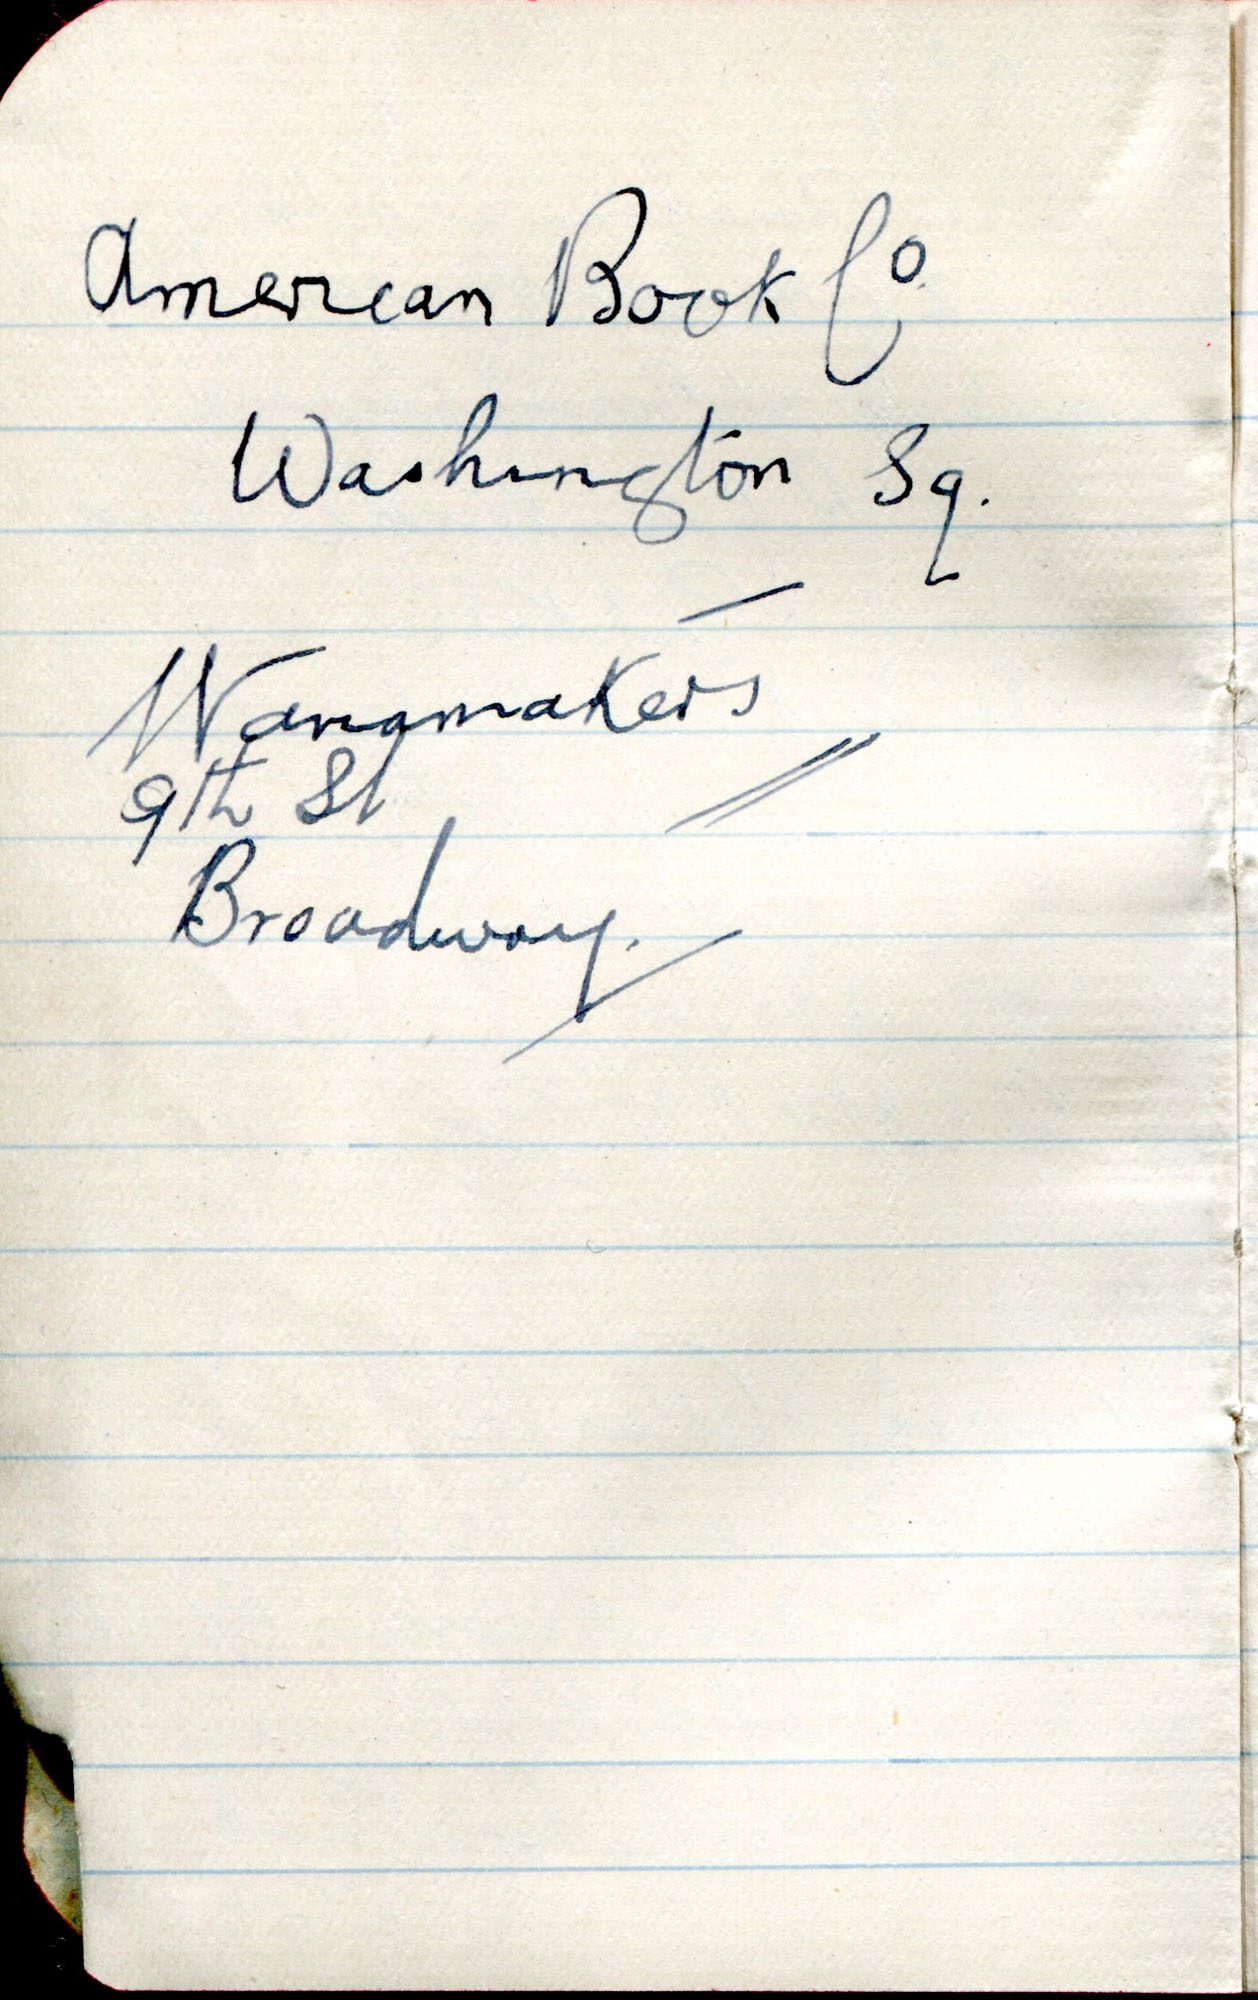 American Book Co.
Washington Sq.
Wanamakers
9th St
Broadway.